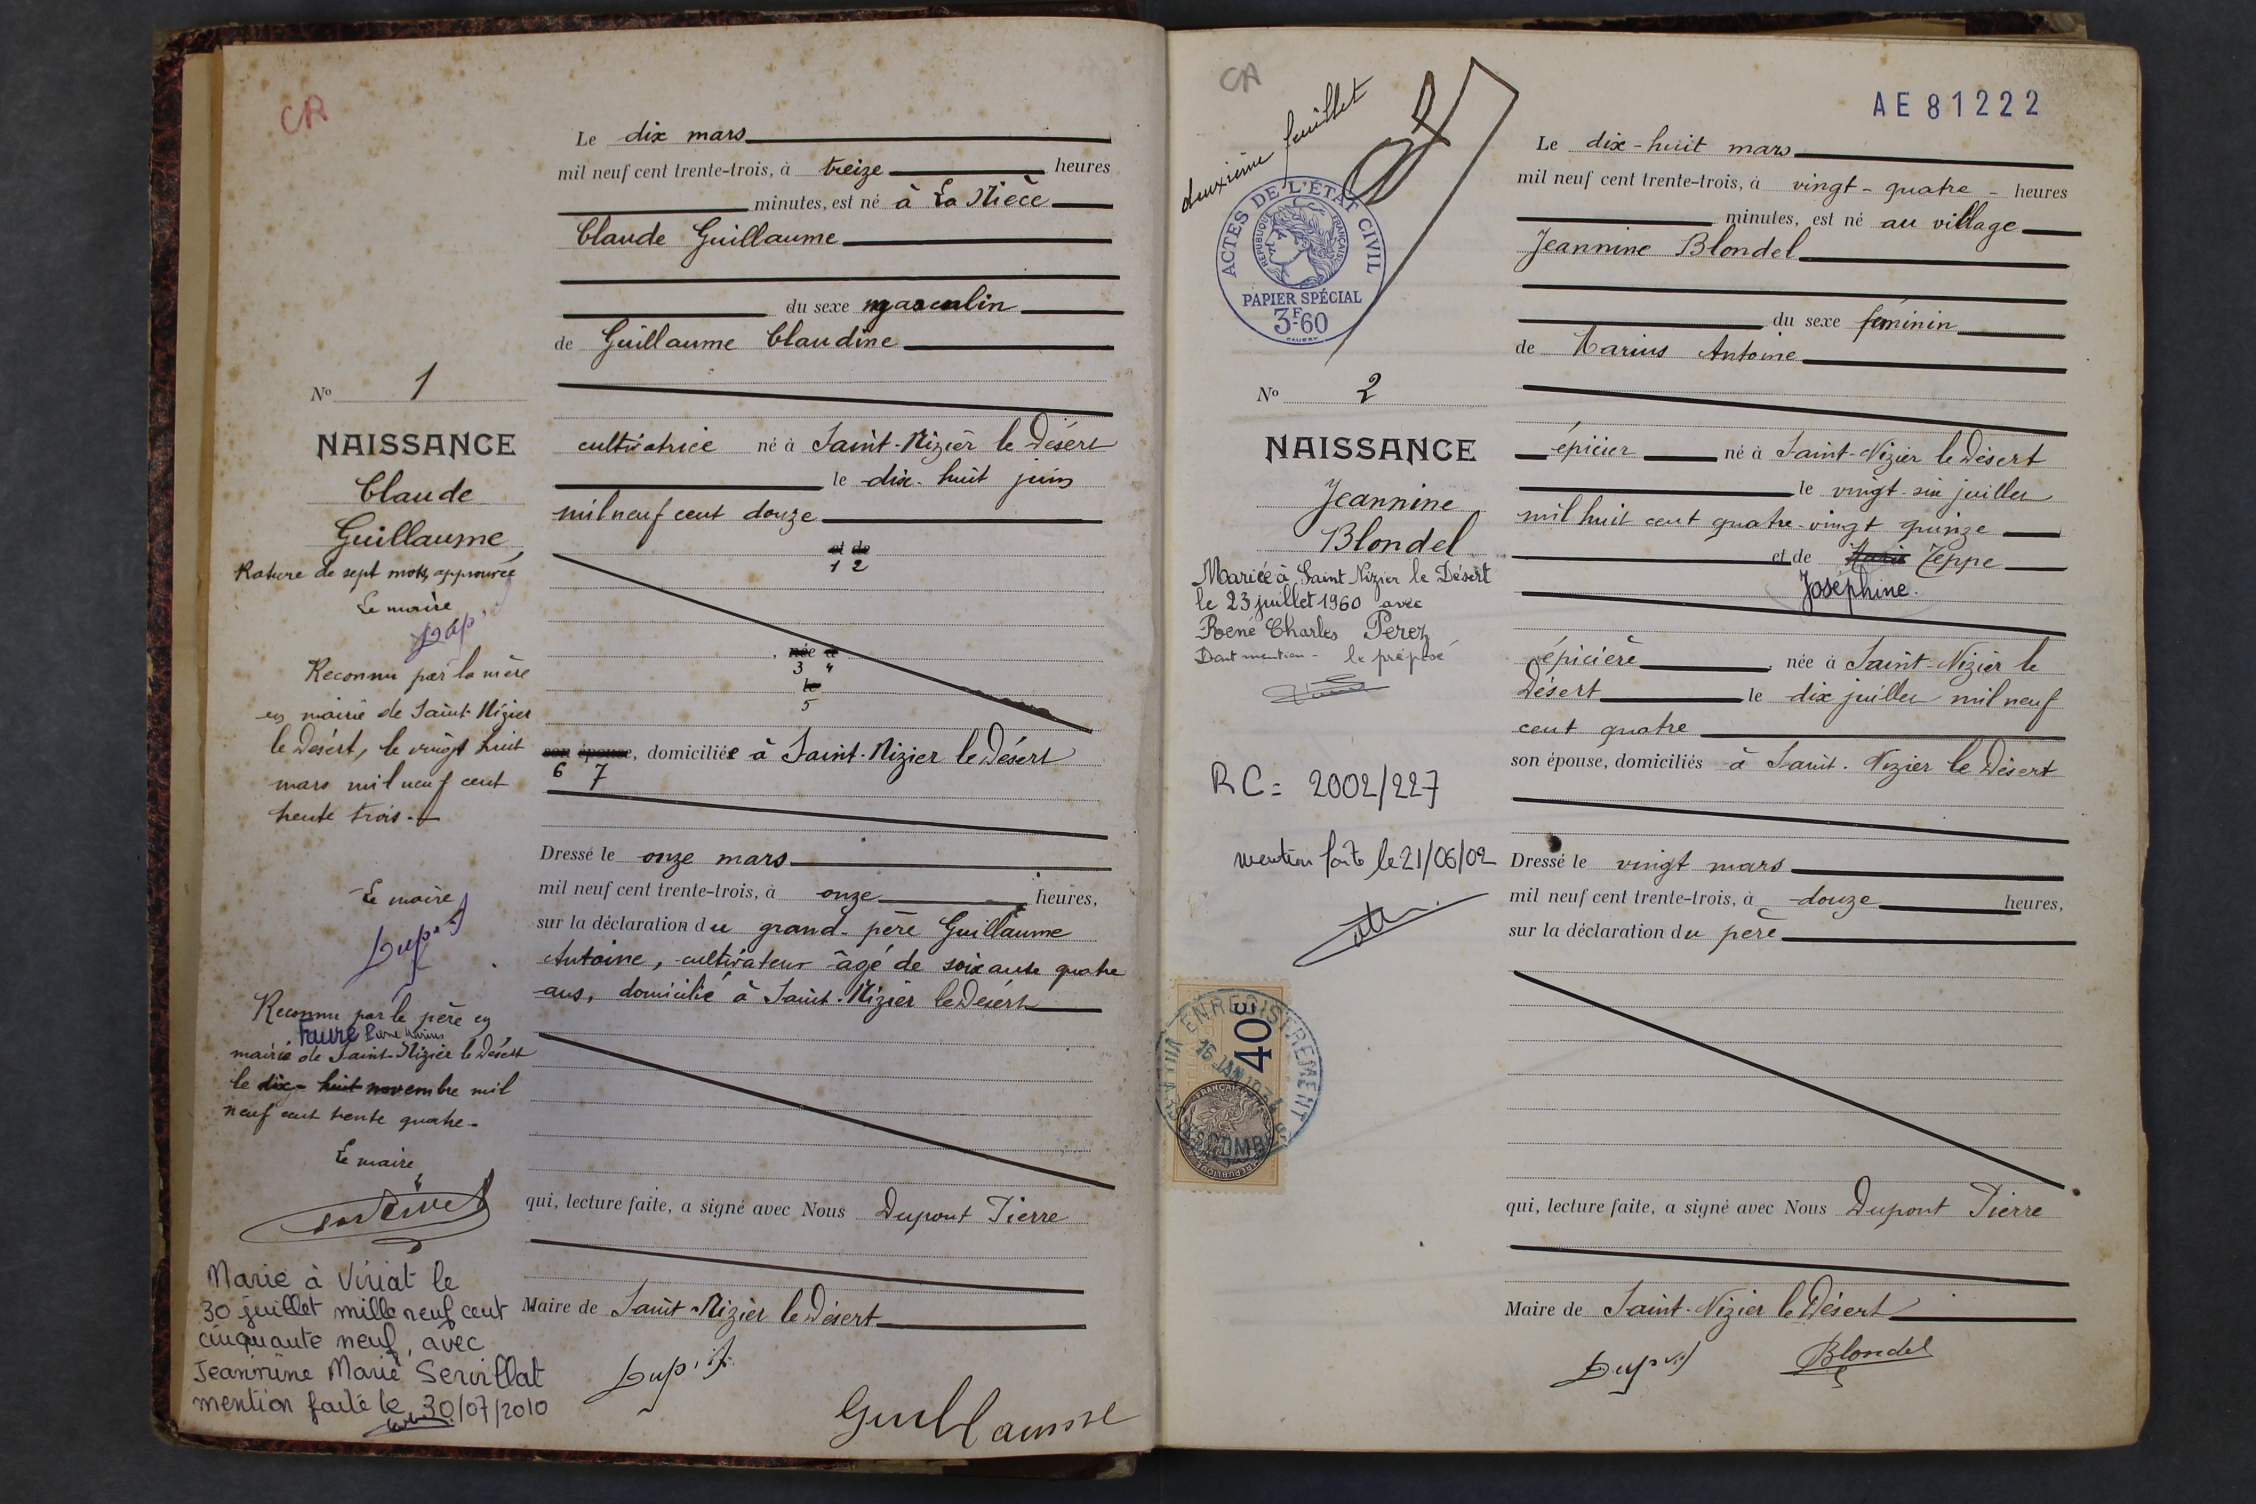 CA
Le dix mars
mil neuf cent trente-trois, à treize heures
minutes, est né à La Nièce
Claude Guillaume
du sexe masculin
de Guillaume Claudine
No 1
NAISSANCE
Claude
Guillaume
Rature de sept mots, approuvée
Le maire
Reconnu par la mère
en mairie de Saint-Nizier
le Désert, le vingt huit
mars mil neuf cent
trente trois.
Le maire
Reconnu par le père en
Faivre Pierre Marius
mairie de Saint-Nizier le Désert
le dix-huit novembre mil
neuf cent trente quatre.
Le maire
Marié à Viriat le
30 juillet mille neuf cent
cinquante neuf, avec
Jeannine Marie Servillat
mention faite le 30/07/2010
cultivatrice né à Saint-Nizier le Désert
le dix-huit juin
mil neuf cent douze
et de
1 2
née à
3 4
le
5
son épouse, domiciliée à Saint-Nizier le Désert
6 7
Dressé le onze mars
mil neuf cent trente-trois, à onze heures,
sur la déclaration du grand-père Guillaume
Antoine, cultivateur âgé de soixante quatre
ans, domicilié à Saint-Nizier le Désert
qui, lecture faite, a signé avec Nous Dupont Pierre
Maire de Saint-Nizier le Désert
Guillaume
CA
deuxième feuillet
ACTES DE L'ÉTAT CIVIL
RÉPUBLIQUE FRANÇAISE
PAPIER SPÉCIAL
3F-60
AE 81222
Le dix-huit mars
mil neuf cent trente-trois, à vingt-quatre heures
minutes, est né au village
Jeannine Blondel
du sexe féminin
de Marius Antoine
No 2
NAISSANCE
Jeannine
Blondel
Mariée à Saint Nizier le Désert
le 23 juillet 1960 avec
René Charles Perez
Dont mention - le préposé
RC = 2002/227
mention faite le 21/06/02
ENREGISTREMENT
16 JAN
40
épicier né à Saint-Nizier le Désert
le vingt-six juillet
mil huit cent quatre-vingt quinze
et de Marie Teppe
Joséphine.
épicière née à Saint-Nizier le
Désert le dix juillet mil neuf
cent quatre
son épouse, domiciliés à Saint-Nizier le Désert
Dressé le vingt mars
mil neuf cent trente-trois, à douze heures,
sur la déclaration du père
qui, lecture faite, a signé avec Nous Dupont Pierre
Maire de Saint-Nizier le Désert
Blondel